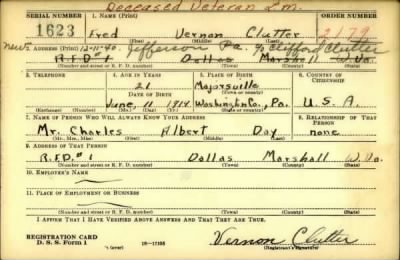 Deceased Veteran L.M.
SERIAL NUMBER 1. NAME (Print) ORDER NUMBER
1623 Fred Vernon Clutter 2179
(First) (Middle) (Last)
new 12-11-40. Jefferson Pa. % Clifford Clutter
2. ADDRESS (Print)
R.F.D. #1 Dallas Marshall W. Va.
(Number and street or R. F. D. number) (Town) (County) (State)
3. TELEPHONE 4. AGE IN YEARS 5. PLACE OF BIRTH 6. COUNTRY OF CITIZENSHIP
21 Majorsville
DATE OF BIRTH (Town or county)
June 11 1919 Washington Co., Pa. U. S. A.
(Exchange) (Number) (Mo.) (Day) (Yr.) (State or country)
7. NAME OF PERSON WHO WILL ALWAYS KNOW YOUR ADDRESS 8. RELATIONSHIP OF THAT PERSON
Mr. Charles Albert Day none
(Mr., Mrs., Miss) (First) (Middle) (Last)
9. ADDRESS OF THAT PERSON
R.F.D. #1 Dallas Marshall W. Va.
(Number and street or R. F. D. number) (Town) (County) (State)
10. EMPLOYER'S NAME
11. PLACE OF EMPLOYMENT OR BUSINESS
(Number and street or R. F. D. number) (Town) (County) (State)
I AFFIRM THAT I HAVE VERIFIED ABOVE ANSWERS AND THAT THEY ARE TRUE.
REGISTRATION CARD
D. S. S. Form 1 (over) 16-17105 Vernon Clutter
(Registrant's signature)